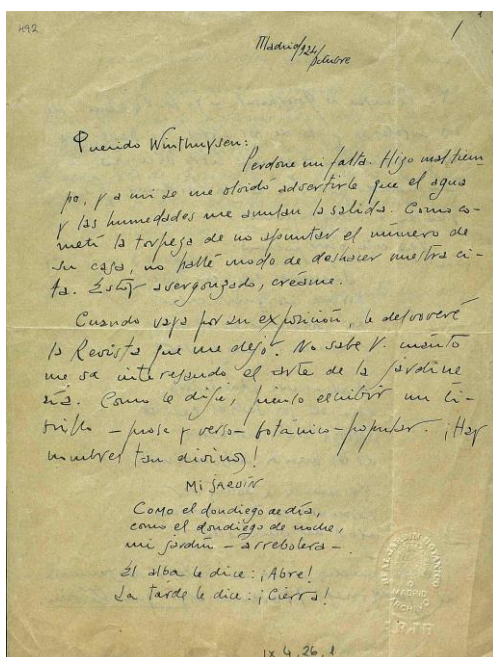 492
1
Madrid/924/
Octubre
Querido Winthuysen:
Perdone mi falta. Hizo mal tiem-
po, y a mí se me olvidó advertirle que el agua
y las humedades me anulan la salida. Como co-
metí la torpeza de no apuntar el número de
su casa, no hallé modo de deshacer nuestra ci-
ta. Estoy avergonzado, créame.
Cuando vaya por su exposición, le devolveré
la Revista que me dejó. No sabe V. cuánto
me va interesando el arte de la jardine
ría. Como le dije, pienso escribir un li-
brillo – prosa y verso – botánico-popular. ¡Hay
nombres tan divinos!
MI JARDÍN
Como el dondiego de día,
como el dondiego de noche,
mi jardín – arrebolera –.
El alba le dice: ¡Abre!
La tarde le dice: ¡Cierra!
REAL JARDIN BOTANICO
MADRID
ARCHIVO
IX 4, 26, 1